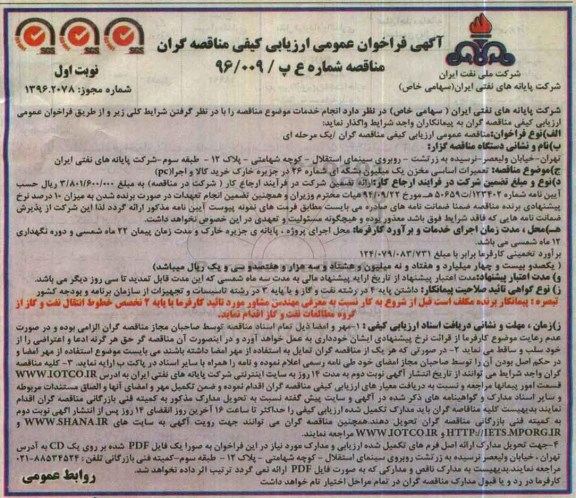 آگهی فراخوان عمومی ارزیابی کیفی مناقصه گران
مناقصه شماره ع پ / ۹۶/۰۰۹
نوبت اول
شماره مجوز: ۱۳۹۶.۲۰۷۸
شرکت ملی نفت ایران
شرکت پایانه های نفتی ایران(سهامی خاص)
SGS SGS SGS
شرکت پایانه های نفتی ایران ( سهامی خاص) در نظر دارد انجام خدمات موضوع مناقصه را با در نظر گرفتن شرایط کلی زیر و از طریق فراخوان عمومی
ارزیابی کیفی مناقصه گران به پیمانکاران واجد شرایط واگذار نماید:
الف)نوع فراخوان:مناقصه عمومی ارزیابی کیفی مناقصه گران /یک مرحله ای
ب)نام و نشانی دستگاه مناقصه گزار:
تهران-خیابان ولیعصر-نرسیده به زرتشت - روبروی سینمای استقلال - کوچه شهامتی - پلاک ۱۲ - طبقه سوم-شرکت پایانه های نفتی ایران
ج)موضوع مناقصه: تعمیرات اساسی مخزن یک میلیون بشکه ای شماره ۲۶ در جزیره خارک خرید کالا و اجرا(pc)
د)نوع و مبلغ تضمین شرکت در فرآیند ارجاع کار:ارائه تضمین شرکت در فرآیند ارجاع کار ( شرکت در مناقصه) به مبلغ ۳/۸۰۱/۶۰۰/۰۰۰ ریال حسب
آیین نامه شماره ۱۲۳۴۰۲/ت۵۰۶۵۹ هـ مورخ ۹۴/۰۹/۲۲ هیات محترم وزیران و همچنین تضمین انجام تعهدات در صورت برنده شدن به میزان ۱۰ درصد نرخ
پیشنهادی برنده مناقصه ضمنا ضمانت نامه های صادره می بایست مطابق فرمت های نمونه پیوست آیین نامه مذکور ارائه گردد لذا این شرکت از پذیرش
ضمانت نامه هایی که فاقد شرایط فوق باشد معذور بوده و هیچگونه مسئولیت و تعهدی در این خصوص نخواهد داشت.
هـ)محل ، مدت زمان اجرای خدمات و برآورد کارفرما: محل اجرای پروژه ، پایانه ی جزیره خارک و مدت زمان پیمان ۲۲ ماه شمسی و دوره نگهداری
۱۲ ماه شمسی می باشد.
برآورد تخمینی کارفرما برابر با مبلغ ۱۲۴/۰۷۹/۰۸۳/۷۳۱
( یکصدو بیست و چهار میلیارد و هفتاد و نه میلیون و هشتاد و سه هزار و هفتصدو سی و یک ریال میباشد)
و) مدت اعتبار پیشنهاد:مدت اعتبار پیشنهاد از تاریخ ارایه پیشنهاد مالی به مدت سه ماه شمسی که این مدت قابل تمدید تا سی روز دیگر می باشد.
ز) نوع گواهی تائید صلاحیت پیمانکار: داشتن پایه ۴ در رشته نفت و گاز و یا پایه ۲ در رشته تاسیسات و تجهیزات از سازمان برنامه و بودجه کشور
تبصره : پیمانکار برنده مکلف است قبل از شروع به کار نسبت به معرفی مهندس مشاور مورد تائید کارفرما با پایه ۲ تخصص خطوط انتقال نفت و گاز از
گروه مطالعات نفت و گاز اقدام نماید.
ز)زمان ، مهلت و نشانی دریافت اسناد ارزیابی کیفی : ۱-مهر و امضا ذیل تمام اسناد مناقصه توسط صاحبان مجاز مناقصه گران الزامی بوده و در صورت
عدم رعایت موضوع کارفرما از قرائت نرخ پیشنهادی ایشان خودداری به عمل خواهد آورد و در اینصورت آن مناقصه گر حق هر گونه ادعا و اعتراضی را از
خود سلب و ساقط می نماید ۲- در صورتی که هر یک از مناقصه گران تمایل به استفاده از مهر امضا داشته باشند می بایست موضوع استفاده از مهر امضا و
در حکم اصل بودن آن را توسط صاحبان مجاز امضای خود طی نامه رسمی اعلام نموده و نامه را همراه با سایر اسناد در پاکت ب ارایه نمایند. ۳- کلیه مناقصه
گران واجد شرایط می توانند از تاریخ انتشار آگهی نوبت دوم به مدت ۱۴ روز به سایت اینترنتی شرکت پایانه های نفتی ایران به آدرس WWW.IOTCO.IR
قسمت امور پیمانها مراجعه و نسبت به دریافت معیار های ارزیابی کیفی مناقصه گران اقدام نموده و ضمن تکمیل مهر و امضای آنها و الصاق مستندات مربوطه
و سایر اسناد مدارک و گواهینامه های ذکر شده در آگهی و سایت پیش گفته نسبت به تحویل مدارک مذکور به کمیته فنی بازرگانی مناقصه گران اقدام
نمایند.بدیهیست کلیه مناقصه گران باید مدارک تکمیل شده ارزیابی کیفی را حداکثر تا ساعت ۱۶ آخرین روز انقضای ۱۴ روز پس از انتشار آگهی نوبت دوم
به کمیته فنی بازرگانی مناقصه گران تحویل دهند.همچنین مناقصه گران می توانند جهت رویت آگهی به سایت های WWW.SHANA.IR و
HTTP://IETS.MPORG.IR و WWW.IOTCO.IR مراجعه نمایند.
۴-جهت تحویل مدارک ارائه اصل فرم های تکمیل شده ارزیابی و مدارک مورد نیاز در این فراخوان به صورا یک فایل PDF شده بر روی یک CD به آدرس
تهران ، خیابان ولیعصر نرسیده به زرتشت روبروی سینمای استقلال - کوچه شهامتی - پلاک ۱۲ - طبقه سوم-کمیته فنی بازرگانی تلفن : ۸۸۵۳۴۵۲۴-۰۲۱
مراجعه نمایند.بدیهیست به مدارک ناقص و مدارکی که به صورت فایل PDF ارائه نمی گردد ترتیب اثر داده نخواهد شد.
کارفرما در رد و یا قبول مدارک مناقصه گران در تمام مراحل اختیار تام خواهد داشت
روابط عمومی